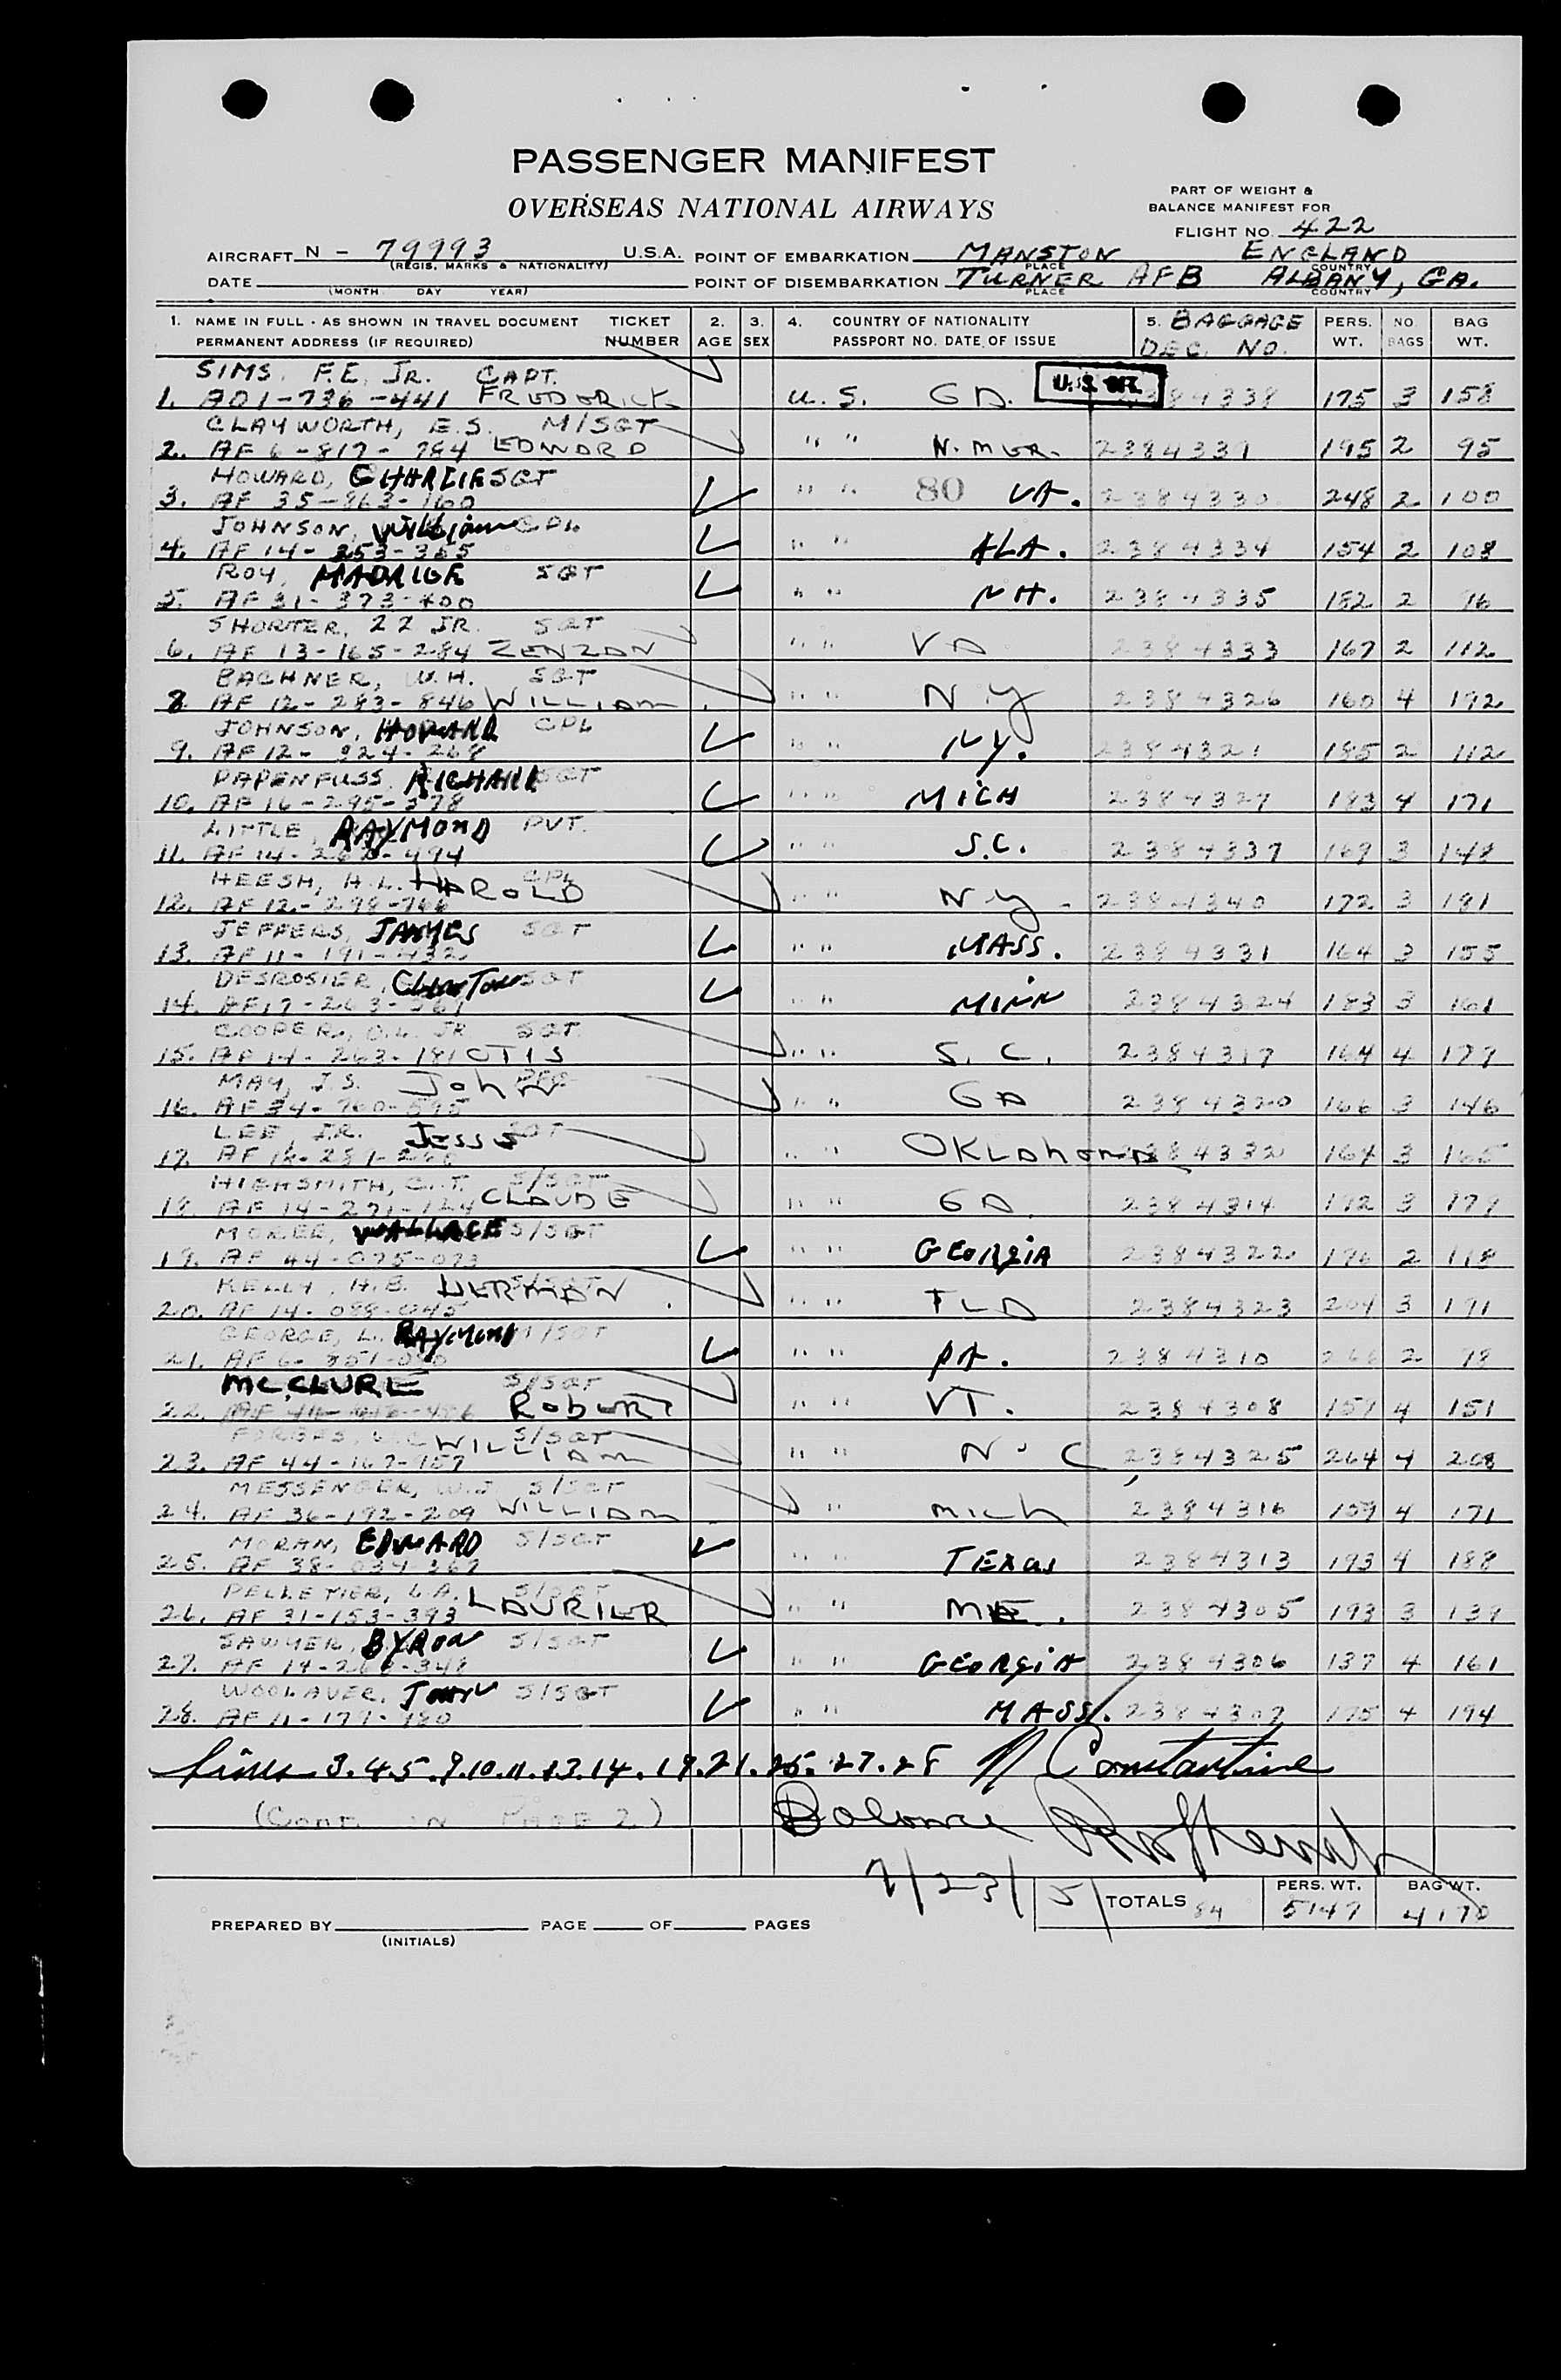 PASSENGER MANIFEST
OVERSEAS NATIONAL AIRWAYS
PART OF WEIGHT &
BALANCE MANIFEST FOR
FLIGHT NO. 422
AIRCRAFT N - 79993 U.S.A. POINT OF EMBARKATION MANSTON ENGLAND
(REGIS. MARKS & NATIONALITY) PLACE COUNTRY
DATE POINT OF DISEMBARKATION TURNER AFB ALBANY, GA.
(MONTH DAY YEAR) PLACE COUNTRY
1. NAME IN FULL - AS SHOWN IN TRAVEL DOCUMENT TICKET 2. 3. 4. COUNTRY OF NATIONALITY 5. BAGGAGE PERS. NO. BAG
PERMANENT ADDRESS (IF REQUIRED) NUMBER AGE SEX PASSPORT NO. DATE OF ISSUE DEC. NO. WT. BAGS WT.
SIMS, F.E. JR. CAPT.
1. AO1-736-441 FREDERICK U.S. GA. 84338 175 3 158
CLAYWORTH, E.S. M/SGT
2. AF 6-817-784 EDWARD " " N. MEX. 2384339 195 2 95
HOWARD, CHARLIE SGT
3. AF 35-863-160 " " 80 VA. 2384330 248 2 100
JOHNSON, William CPL
4. AF 14-253-355 " " ALA. 2384334 154 2 108
ROY, MAURICE SGT
5. AF 31-373-400 " " NH. 2384335 182 2 96
SHORTER, ZZ JR. SGT
6. AF 13-165-284 ZENZAN " " VA 2384333 167 2 112
BACHNER, W.H. SGT
8. AF 12-283-846 WILLIAM " " NY 2384326 160 4 192
JOHNSON, HOWARD CPL
9. AF 12-324-268 " " NY. 2384321 185 2 112
PAPENFUSS, RICHARD SGT
10. AF 16-295-378 " " MICH 2384327 183 4 171
LITTLE, RAYMOND PVT.
11. AF 14-262-494 " " S.C. 2384337 169 3 148
HEESH, H.L. HAROLD CPL
12. AF 12-298-766 " " NY 2384340 172 3 181
JEFFERS, JAMES SGT
13. AF 11-191-432 " " MASS. 2384331 164 3 155
DESROSIER, Clinton SGT
14. AF 17-263-361 " " MINN 2384324 183 3 161
COOPER, O.L. JR SGT
15. AF 14-263-181 OTIS " " S.C. 2384317 164 4 177
MAY, J.S. John PFC
16. AF 34-760-595 " " GA 2384320 166 3 146
LEE, J.R. JESSE SGT
17. AF 18-281-260 " " OKLAHOMA 84332 164 3 165
HIGHSMITH, C.T. S/SGT
18. AF 14-271-124 CLAUDE " " GA. 2384314 192 3 179
MOREE, WALLACE S/SGT
19. AF 44-075-073 " " GEORGIA 2384322 176 2 118
KELLY, H.B. HERMAN S/SGT
20. AF 14-088-045 " " FLA 2384323 204 3 191
GEORGE, L. RAYMOND M/SGT
21. AF 6-351-080 " " PA. 2384310 266 2 98
MCCLURE S/SGT
22. ROBERT " " VT. 2384308 157 4 151
FORBES, WILLIAM S/SGT
23. AF 44-167-957 " " N.C 2384325 264 4 208
MESSENGER, W.J. S/SGT
24. AF 36-192-209 WILLIAM " " mich 2384316 159 4 171
MORAN, EDWARD S/SGT
25. AF 38-034-367 " " TEXAS 2384313 193 4 188
PELLETIER, L.A. LAURIER S/SGT
26. AF 31-153-393 " " ME. 2384305 193 3 139
SAWYER, BYRON S/SGT
27. AF 14-260-348 " " GEORGIA 2384306 137 4 161
WOOLAVER, JOHN S/SGT
28. AF 11-179-180 " " MASS. 2384307 175 4 194
Lines 3.4.5.9.10.11.13.14.19.21.25.27.28 N Constantine
(CONT. ON PAGE 2) Balance
7/23/51 TOTALS 84 PERS. WT. 5147 BAG WT. 4170
PREPARED BY PAGE OF PAGES
(INITIALS)